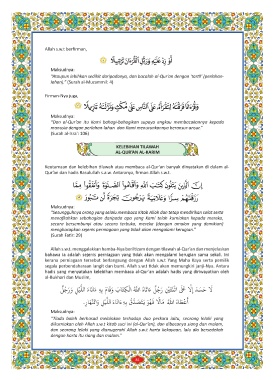 Allah s.w.t. berfirman,
أَوْ زِدْ عَلَيْهِ وَرَتِّلِ الْقُرْآنَ تَرْتِيلًا
Maksudnya:
"Ataupun lebihkan sedikit daripadanya, dan bacalah al-Qur'an dengan 'tartil' (perlahan-
lahan)." (Surah al-Muzammil: 4)
Firman-Nya juga,
وَقُرْآنًا فَرَقْنَاهُ لِتَقْرَأَهُ عَلَى النَّاسِ عَلَىٰ مُكْثٍ وَنَزَّلْنَاهُ تَنزِيلًا
Maksudnya:
"Dan al-Qur'an itu Kami bahagi-bahagikan supaya engkau membacakannya kepada
manusia dengan perlahan-lahan dan Kami menurunkannya beransur-ansur."
(Surah al-Isra': 106)
KELEBIHAN TILAWAH
AL-QUR'AN AL-KARIM
Keutamaan dan kelebihan tilawah atau membaca al-Qur'an banyak dinyatakan di dalam al-
Qur'an dan hadis Rasulullah s.a.w. Antaranya, firman Allah s.w.t.
إِنَّ الَّذِينَ يَتْلُونَ كِتَابَ اللَّهِ وَأَقَامُوا الصَّلَاةَ وَأَنفَقُوا مِمَّا
رَزَقْنَاهُمْ سِرًّا وَعَلَانِيَةً يَرْجُونَ تِجَارَةً لَّن تَبُورَ
Maksudnya:
"Sesungguhnya orang yang selalu membaca kitab Allah dan tetap mendirikan solat serta
menafkahkan sebahagian daripada apa yang Kami telah kurniakan kepada mereka,
secara bersembunyi atau secara terbuka, mereka (dengan amalan yang demikian)
mengharapkan sejenis perniagaan yang tidak akan mengalami kerugian."
(Surah Fatir: 29)
Allah s.w.t. menggalakkan hamba-Nya beribadat dengan tilawah al-Qur'an dan menjelaskan
bahawa ia adalah sejenis perniagaan yang tidak akan mengalami kerugian sama sekali. Ini
kerana perniagaan tersebut berlangsung dengan Allah s.w.t. Yang Maha Kaya serta pemilik
segala perbendaharaan langit dan bumi. Allah s.w.t. tidak akan memungkiri janji-Nya. Antara
hadis yang menyatakan kelebihan membaca al-Qur'an adalah hadis yang diriwayatkan oleh
al-Bukhari dan Muslim,
لَا حَسَدَ إِلَّا عَلَى اثْنَتَيْنِ رَجُلٌ آتَاهُ اللَّهُ الْكِتَابَ وَقَامَ بِهِ آنَاءَ اللَّيْلِ وَرَجُلٌ
أَعْطَاهُ اللَّهُ مَالًا فَهُوَ يَتَصَدَّقُ بِهِ آنَاءَ اللَّيْلِ وَالنَّهَارِ.
Maksudnya:
"Tiada boleh berhasad melainkan terhadap dua perkara iaitu, seorang lelaki yang
dikurniakan oleh Allah s.w.t. kitab suci ini (al-Qur'an), dan dibacanya siang dan malam,
dan seorang lelaki yang dianugerahi Allah s.w.t. harta kekayaan, lalu dia bersedekah
dengan harta itu siang dan malam."